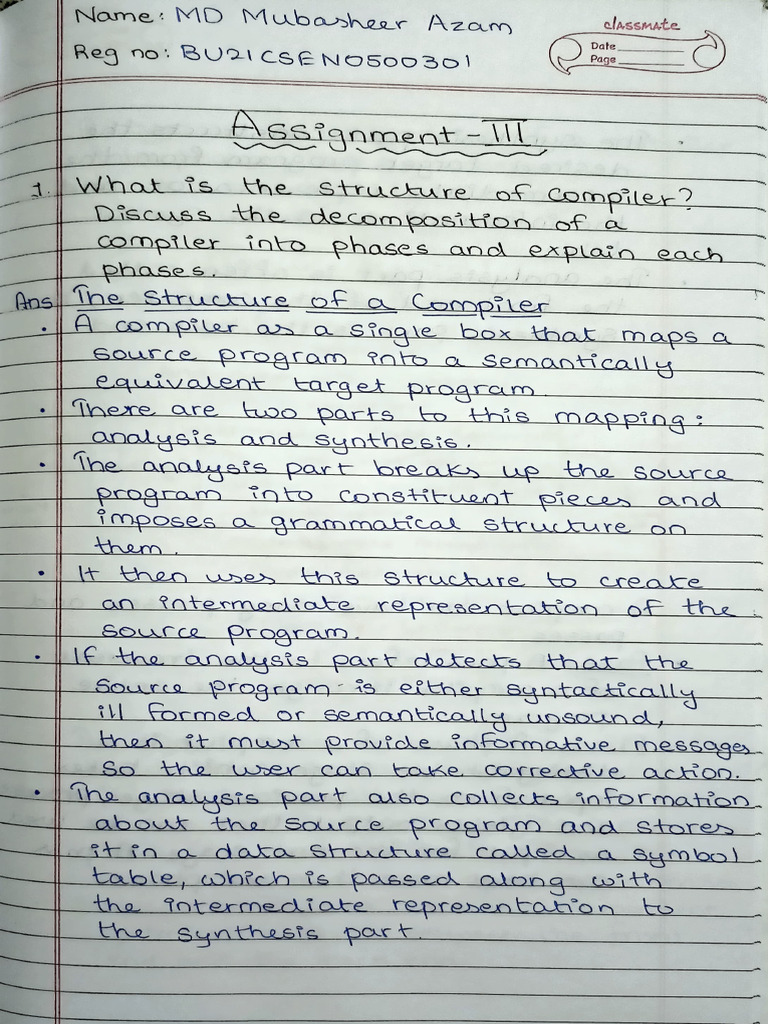 Name: MD Mubasheer Azam
classmate
Reg no: BU21CSEN0500301
Date
Page
Assignment - III
1. What is the structure of compiler?
Discuss the decomposition of a
compiler into phases and explain each
phases.
Ans The Structure of a Compiler
• A compiler as a single box that maps a
source program into a semantically
equivalent target program.
• There are two parts to this mapping:
analysis and synthesis.
• The analysis part breaks up the source
program into constituent pieces and
imposes a grammatical structure on
them.
• It then uses this structure to create
an intermediate representation of the
source program.
• If the analysis part detects that the
source program is either syntactically
ill formed or semantically unsound,
then it must provide informative messages
so the user can take corrective action.
• The analysis part also collects information
about the source program and stores
it in a data structure called a symbol
table, which is passed along with
the intermediate representation to
the synthesis part.